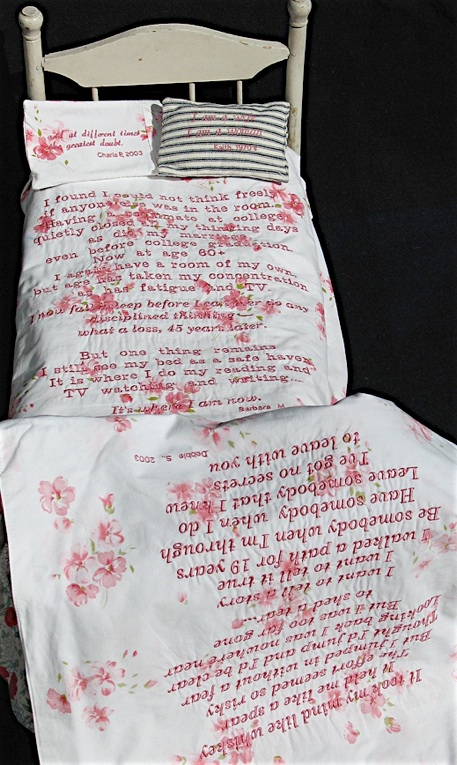 at different times
greatest doubt.
Charla E 2003
I am a wife
I am a woman
I found I could not think freely
if anyone else was in the room.
Having a roommate at college
quietly closed my thinking days
as did my marriage
even before college graduation.
Now at age 60+
I again have a room of my own,
but age has taken my concentration
as has fatigue and TV.
I now fall asleep before I can ever do any
disciplined thinking--
what a loss, 45 years later.
But one thing remains
I still see my bed as a safe haven
It is where I do my reading and
TV watching and writing...
It's where I am now.
Barbara M.
It took my mind like whiskey
It held me like a spear
effort seemed so risky
But I jumped in without a fear
Thought I'd jump and I'd be clear
Looking back I was nowhere near
But I was too far gone
to shed a tear....
I want to tell a story
I want to tell it true
I walked a path for 19 years
Be somebody when I'm through
Have somebody when I do
Leave somebody that I knew
I've got no secrets
to leave with you
Debbie S., 2003